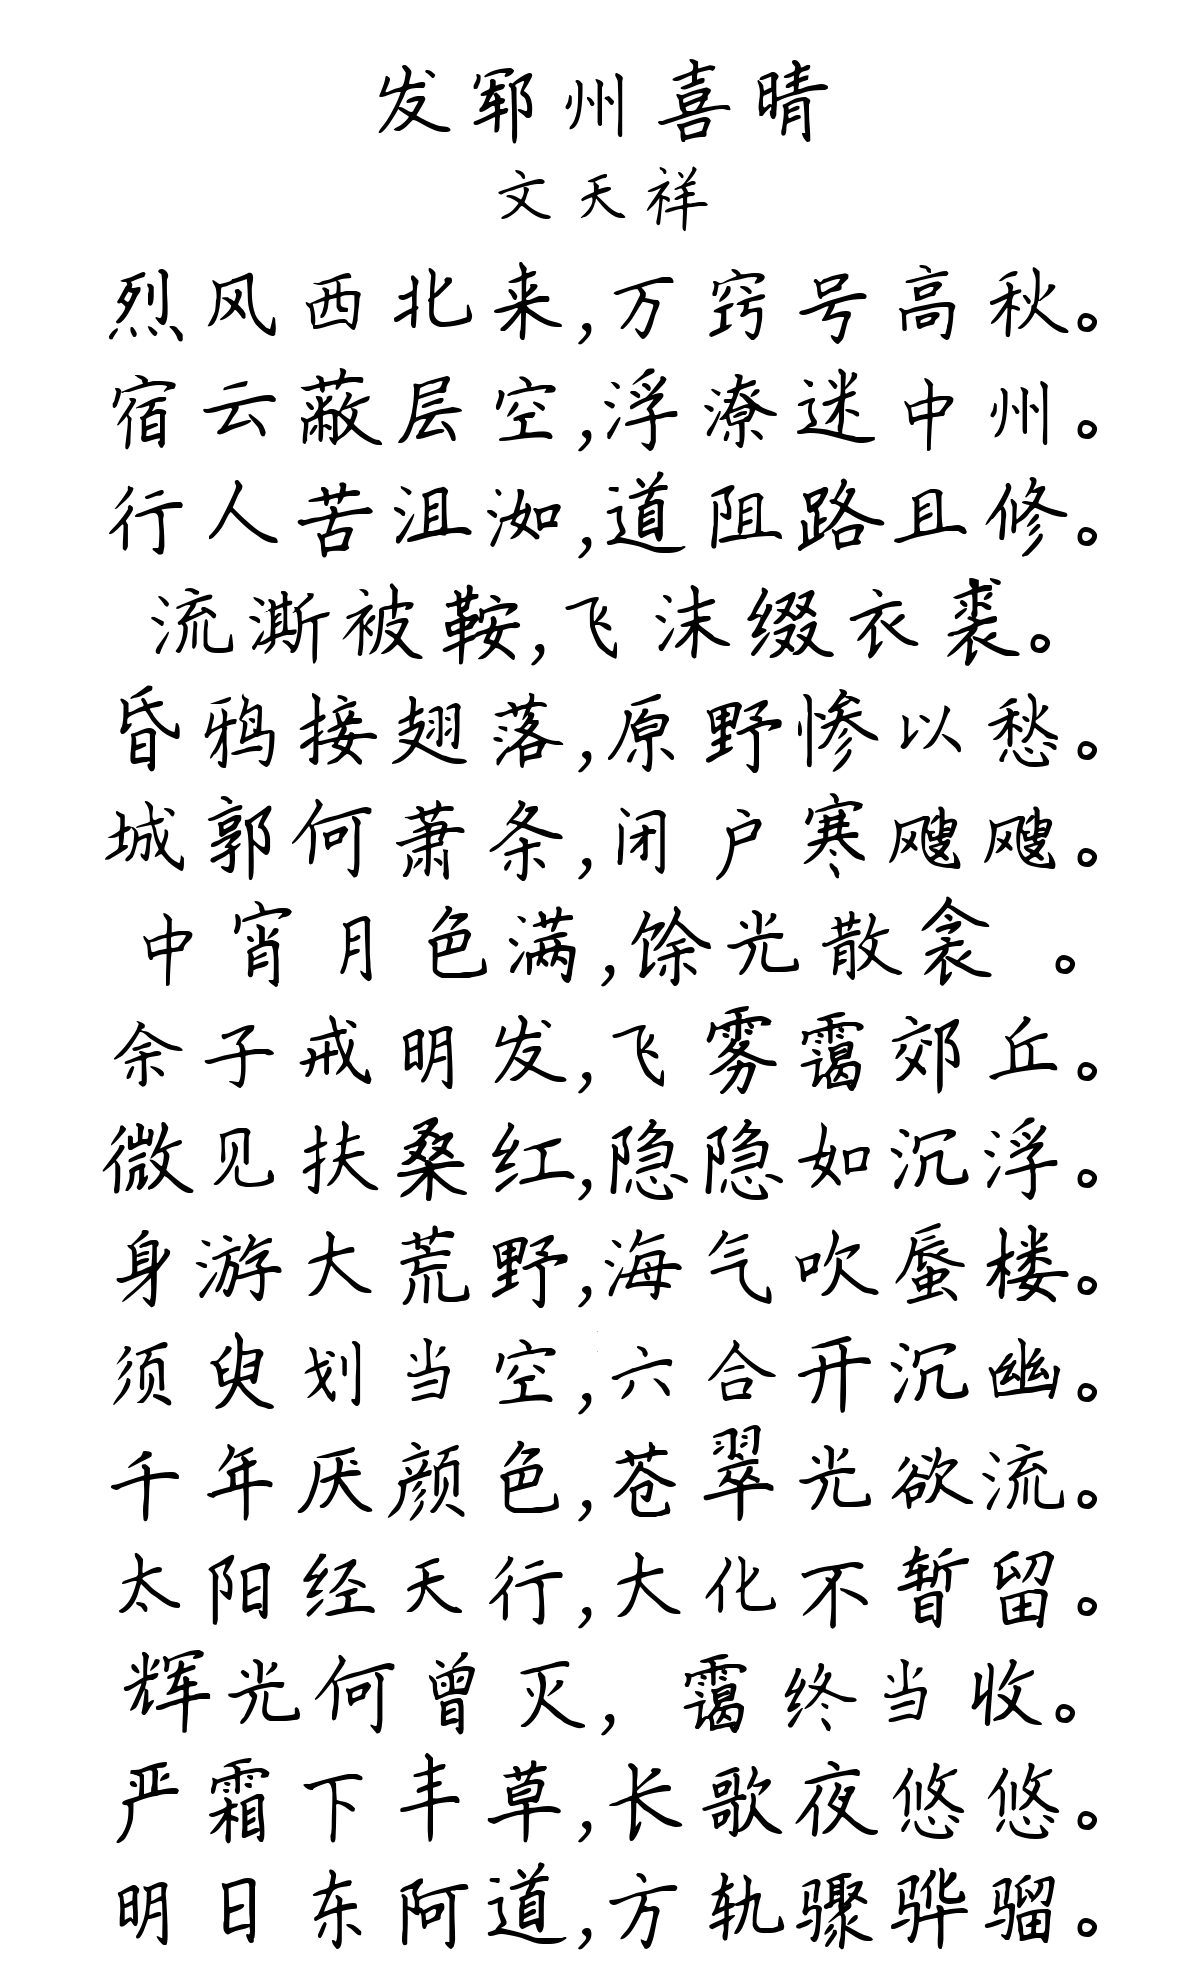 发郓州喜晴
文天祥
烈风西北来,万窍号高秋。
宿云蔽层空,浮潦迷中州。
行人苦沮洳,道阻路且修。
流澌被鞍,飞沫缀衣裘。
昏鸦接翅落,原野惨以愁。
城郭何萧条,闭户寒飕飕。
中宵月色满,馀光散衾 。
余子戒明发,飞雾霭郊丘。
微见扶桑红,隐隐如沉浮。
身游大荒野,海气吹蜃楼。
须臾划当空,六合开沉幽。
千年厌颜色,苍翠光欲流。
太阳经天行,大化不暂留。
辉光何曾灭, 霭终当收。
严霜下丰草,长歌夜悠悠。
明日东阿道,方轨骤骅骝。